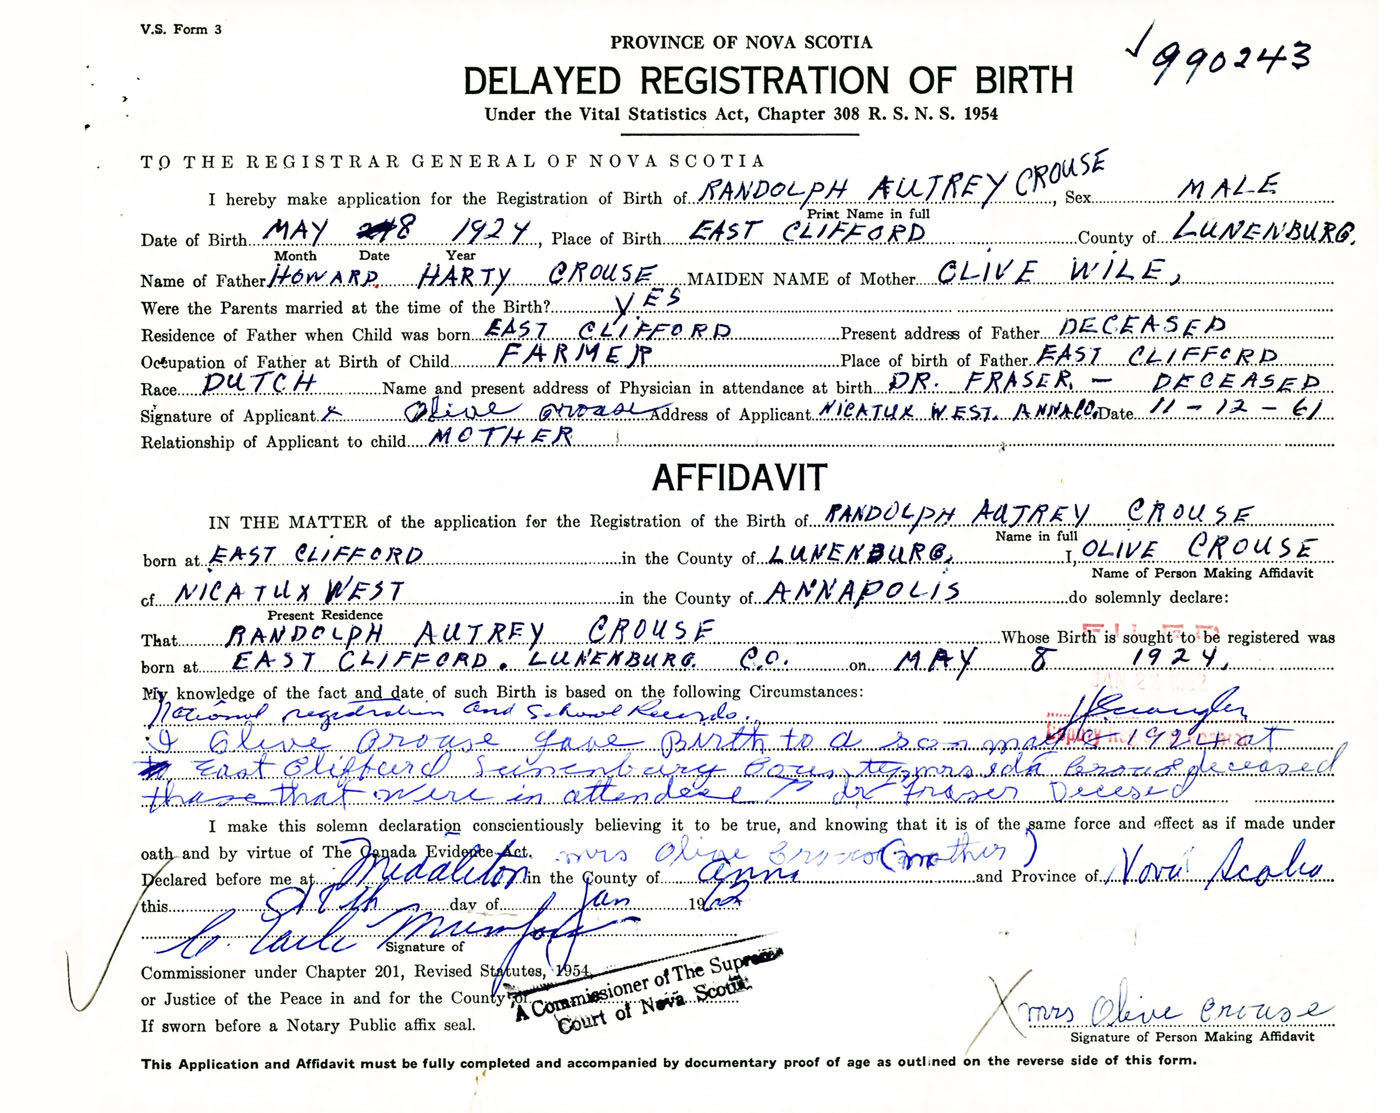 V.S. Form 3
PROVINCE OF NOVA SCOTIA
990243
DELAYED REGISTRATION OF BIRTH
Under the Vital Statistics Act, Chapter 308 R. S. N. S. 1954
TO THE REGISTRAR GENERAL OF NOVA SCOTIA
I hereby make application for the Registration of Birth of RANDOLPH AUTREY CROUSE, Sex MALE
Print Name in full
Date of Birth MAY 8 1924, Place of Birth EAST CLIFFORD County of LUNENBURG.
Month Date Year
Name of Father HOWARD HARTY CROUSE MAIDEN NAME of Mother OLIVE WILE,
Were the Parents married at the time of the Birth? YES
Residence of Father when Child was born EAST CLIFFORD Present address of Father DECEASED
Occupation of Father at Birth of Child FARMER Place of birth of Father EAST CLIFFORD
Race DUTCH Name and present address of Physician in attendance at birth DR. FRASER. - DECEASED
Signature of Applicant x Olive Crouse Address of Applicant NICATUX WEST. ANNA CO. Date 11-12-61
Relationship of Applicant to child MOTHER
AFFIDAVIT
IN THE MATTER of the application for the Registration of the Birth of RANDOLPH AUTREY CROUSE
Name in full
born at EAST CLIFFORD in the County of LUNENBURG, I, OLIVE CROUSE
Name of Person Making Affidavit
of NICATUX WEST in the County of ANNAPOLIS do solemnly declare:
Present Residence
That RANDOLPH AUTREY CROUSE Whose Birth is sought to be registered was
born at EAST CLIFFORD. LUNENBURG. CO. on MAY 8 1924,
My knowledge of the fact and date of such Birth is based on the following Circumstances:
National registration and School Records.
I Olive Crouse gave Birth to a son may 8 1924 at
East Clifford Lunenburg County mrs Ida Crouse deceased
those that were in attendece Dr Fraser Decesed
I make this solemn declaration conscientiously believing it to be true, and knowing that it is of the same force and effect as if made under
oath and by virtue of The Canada Evidence Act. mrs Olive Crouse (mother)
Declared before me at Middleton in the County of Anna and Province of Nova Scotia
this day of Jan 1962
Signature of
Commissioner under Chapter 201, Revised Statutes, 1954,
or Justice of the Peace in and for the County of
A Commissioner of The Supreme
Court of Nova Scotia
If sworn before a Notary Public affix seal.
mrs Olive Crouse
Signature of Person Making Affidavit
This Application and Affidavit must be fully completed and accompanied by documentary proof of age as outlined on the reverse side of this form.